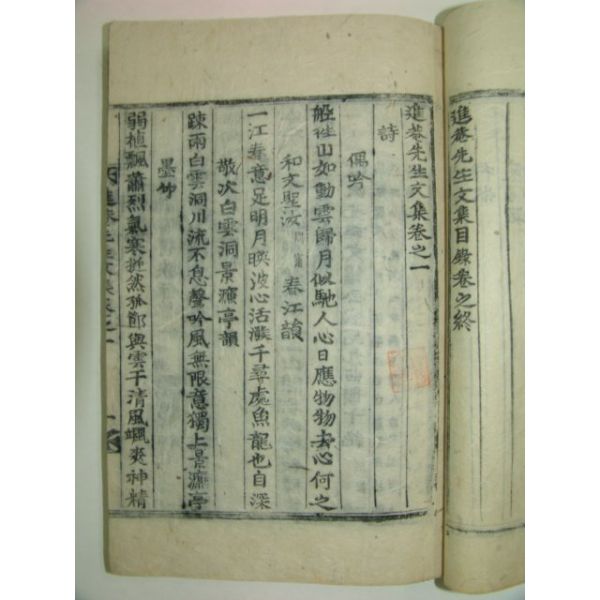 進菴先生文集目錄卷之終
進菴先生文集卷之一
詩
偶吟
船徃山如動雲歸月似馳人心日應物物去心何之
和文聖汝 春江韻
一江春意足明月映波心活潑千尋處魚龍也自深
敬次白雲洞景濂亭韻
踈雨白雲洞川流不息聲吟風無限意獨上景濂亭
墨竹
弱植飄蕭烈氣寒挺然孤節與雲干清風颯爽神精